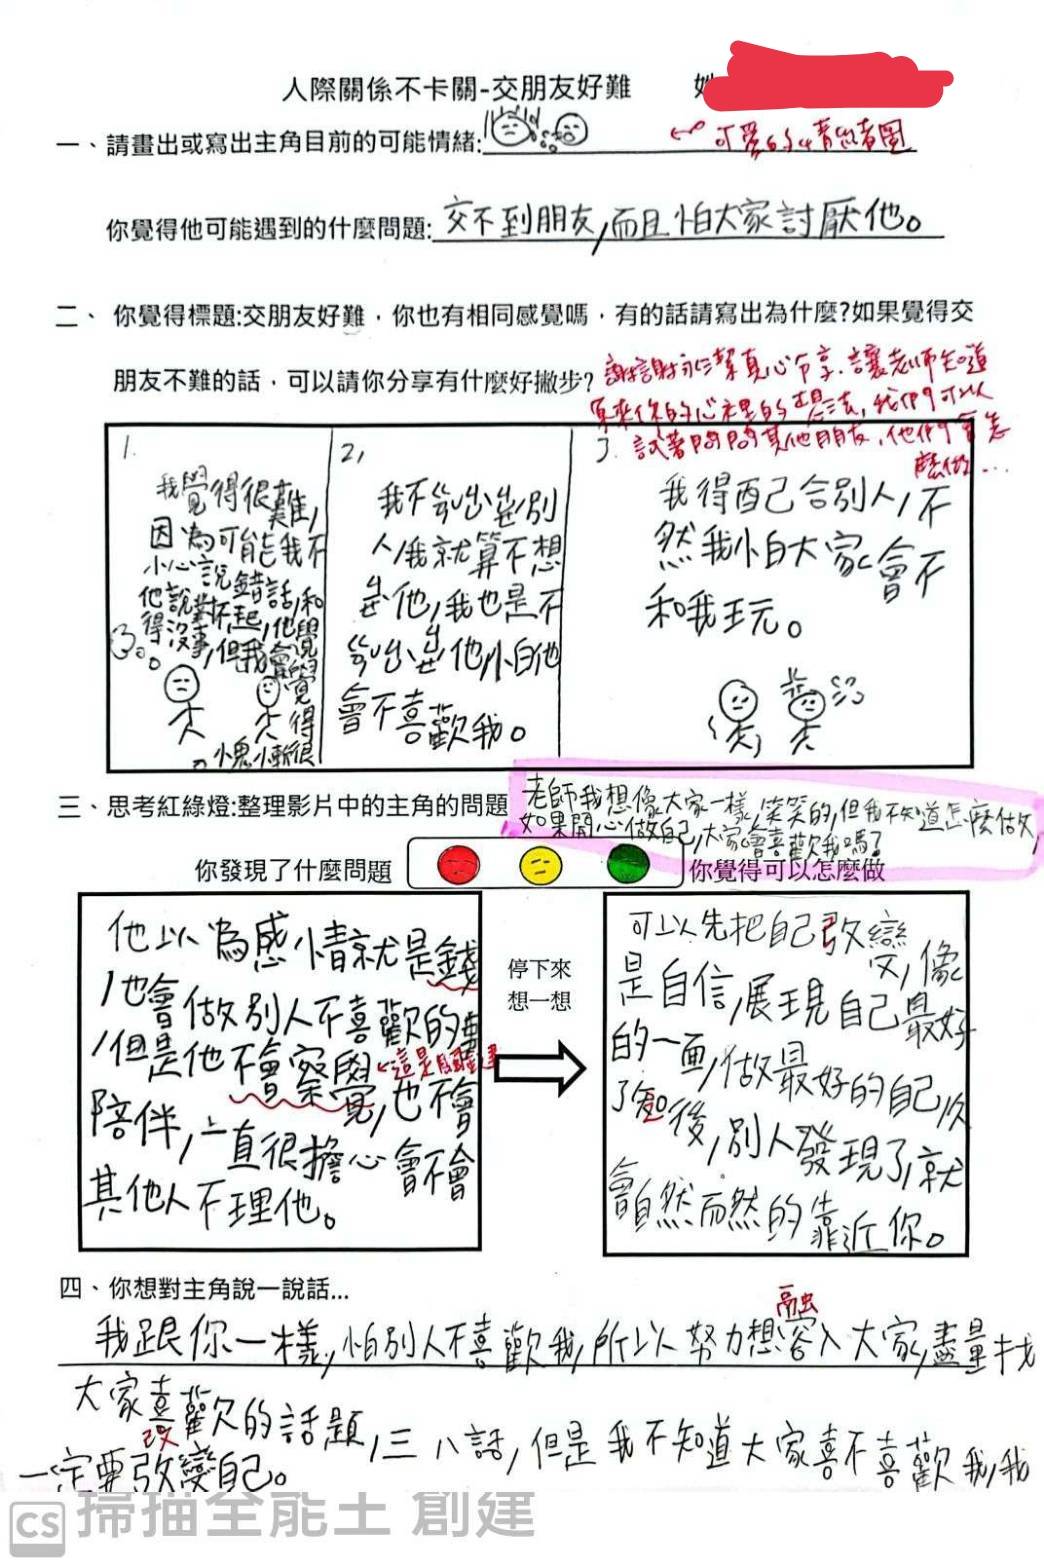 人際關係不卡關-交朋友好難 姓
一、請畫出或寫出主角目前的可能情緒:
←可愛的情緒圖
你覺得他可能遇到的什麼問題: 交不到朋友,而且怕大家討厭他。
二、 你覺得標題:交朋友好難,你也有相同感覺嗎,有的話請寫出為什麼?如果覺得交
朋友不難的話,可以請你分享有什麼好撇步?
謝謝 真心分享.讓老師知道
原來你的心裡的想法,我們可以
試著問問其他朋友,他們會怎
麼做...
1.
我覺得很難,
因為可能我不
小心說錯話,和
他說對不起,他覺
得沒事,但我會覺
得很
慚愧。
2,
我不能出賣別
人,我就算不想
他,我也是不
能 他,怕他
會不喜歡我。
3.
我得配合別人,不
然我怕大家會不
和我玩。
三、思考紅綠燈:整理影片中的主角的問題
老師我想像大家一樣,笑笑的,但我不知道怎麼做,
如果開心做自己,大家會喜歡我嗎?
你發現了什麼問題
你覺得可以怎麼做
他以為感情就是錢
,他會做別人不喜歡的事
,但是他不會察覺,也不會
←這是關鍵
陪伴,一直很擔心會不會
其他人不理他。
停下來
想一想
可以先把自己改變,像
是自信,展現自己最好
的一面,做最好的自己,次
了知後,別人發現了,就
會自然而然的靠近你。
四、你想對主角說一說話...
融
我跟你一樣,怕別人不喜歡我,所以努力想容入大家,盡量找
大家喜歡的話題,三八話,但是我不知道大家喜不喜歡我,我
改
一定要改變自己。
CS 掃描全能王 創建